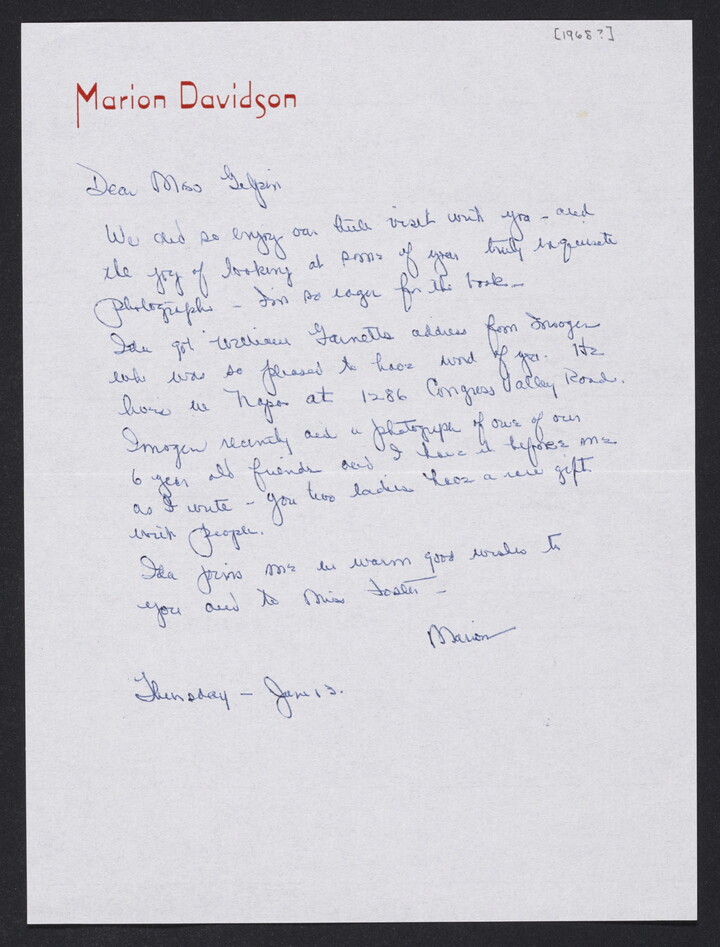 [1968?]
Marion Davidson
Dear Miss Gilpin
We did so enjoy our little visit with you - and
the joy of looking at some of your truly exquisite
photographs - I'm so eager for the book -
Ida got William Garnetts address from Imogen
who was so pleased to have word of you. He
lives in Napa at 1286 Congress Valley Road.
Imogen recently did a photograph of one of our
6 year old friends and I have it before me
as I write - you two ladies have a rare gift
with people.
Ida joins me in warm good wishes to
you and to Miss Foster -
Marion
Thursday - June 13.